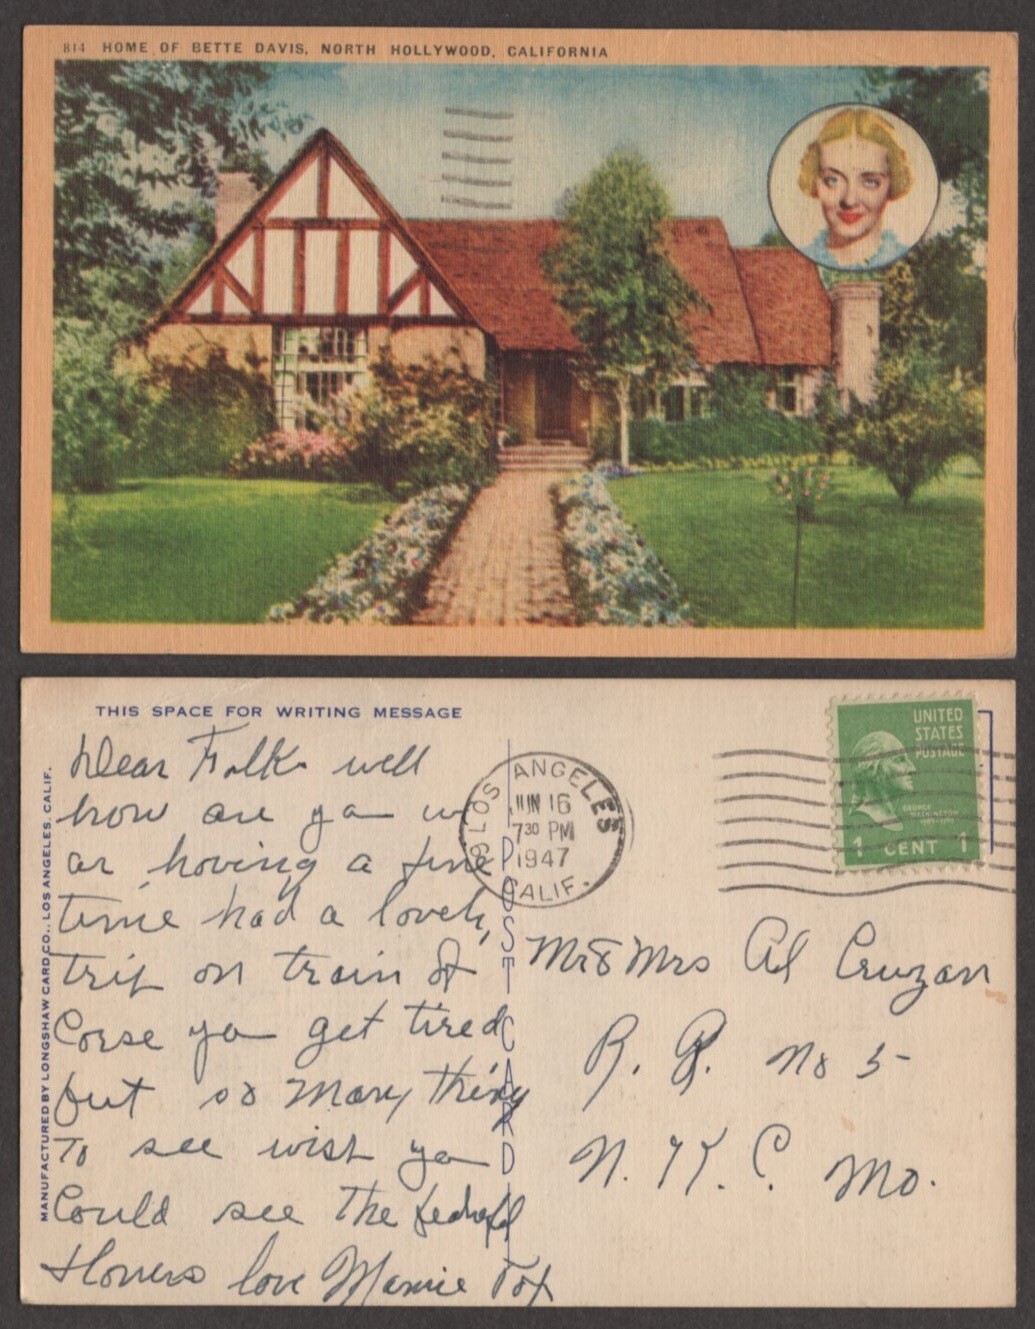 814 HOME OF BETTE DAVIS, NORTH HOLLYWOOD, CALIFORNIA
THIS SPACE FOR WRITING MESSAGE
Dear Folks well
how are ya we
ar hoving a fine
time had a lovely
trip on train of
Corse ya get tired
but so many things
To see wish ya
Could see the
Flowers love Mamie
MANUFACTURED BY LONGSHAW CARD CO., LOS ANGELES, CALIF.
POST CARD
LOS ANGELES
JUN 16
7 30 PM
1947
CALIF.
UNITED
STATES
POSTAGE
GEORGE
WASHINGTON
1 CENT 1
Mr & Mrs Al Cruzan
R. R. No 5
N. K. C. Mo.